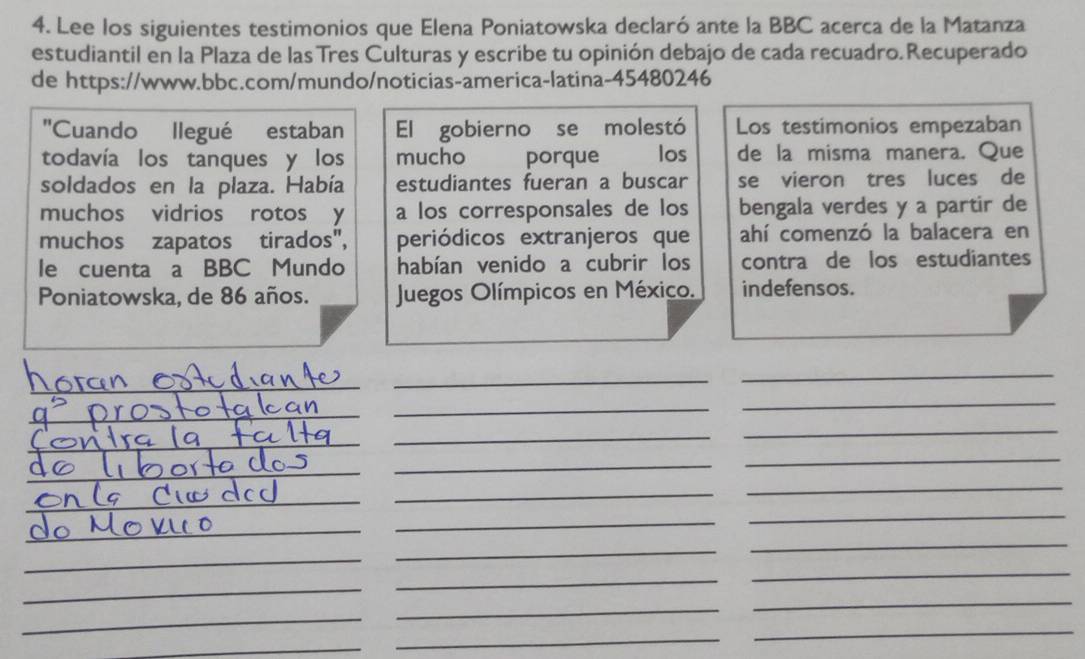 4. Lee los siguientes testimonios que Elena Poniatowska declaró ante la BBC acerca de la Matanza
estudiantil en la Plaza de las Tres Culturas y escribe tu opinión debajo de cada recuadro. Recuperado
de https://www.bbc.com/mundo/noticias-america-latina-45480246
"Cuando llegué estaban
todavía los tanques y los
soldados en la plaza. Había
muchos vidrios rotos y
muchos zapatos tirados",
le cuenta a BBC Mundo
Poniatowska, de 86 años.
El gobierno se molestó
mucho porque los
estudiantes fueran a buscar
a los corresponsales de los
periódicos extranjeros que
habían venido a cubrir los
Juegos Olímpicos en México.
Los testimonios empezaban
de la misma manera. Que
se vieron tres luces de
bengala verdes y a partir de
ahí comenzó la balacera en
contra de los estudiantes
indefensos.
horan
contra la falta
de libertades
en la
de